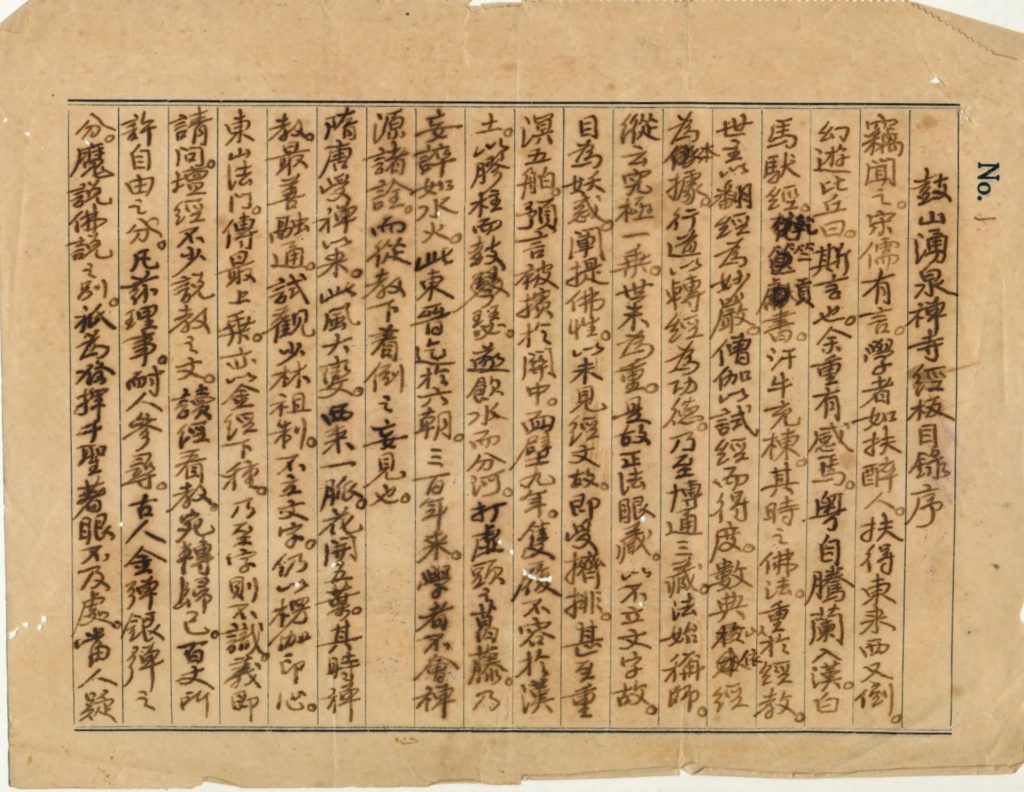 No. 1
鼓山湧泉禪寺經板目錄序
竊聞之。宋儒有言。學者如扶醉人。扶得東來西又倒。
幻遊比丘曰。斯言也。余重有感焉。粵自騰蘭入漢。白
馬馱經。竺墳書。汗牛充棟。其時之佛法。重於經教。
世主以翻經為妙嚴。僧伽以試經而得度。數典必依經
為本據。行道以轉經為功德。乃至博通三藏。法始稱師。
縱云究極一乘。世未為重。是故正法眼藏。以不立文字故。
目為妖惑。闡提佛性。以未見經文故。即受擠排。甚至重
溟五舶。預言被擯於關中。面壁九年。隻履不容於漢
土。以膠柱而鼓琴瑟。遂飲水而分河。打虛頭之葛藤。乃
妄諍如水火。此東晉迄於六朝。三百年來。學者不會禪
源諸詮。而從教下看倒之妄見也。
隋唐學禪以來。此風大變。西來一脈。花開五葉。其時禪
教。最善融通。試觀少林祖制。不立文字。仍以楞伽印心。
東山法門。傳最上乘。亦以金經下種。乃至字則不識。義即
請問。壇經不少說教之文。讀經看教。宛轉歸己。百丈所
許自由之分。凡茲理事。耐人參尋。古人金彈銀彈之
分。魔說佛說之別。祇為發揮千聖著眼不及處。當人疑